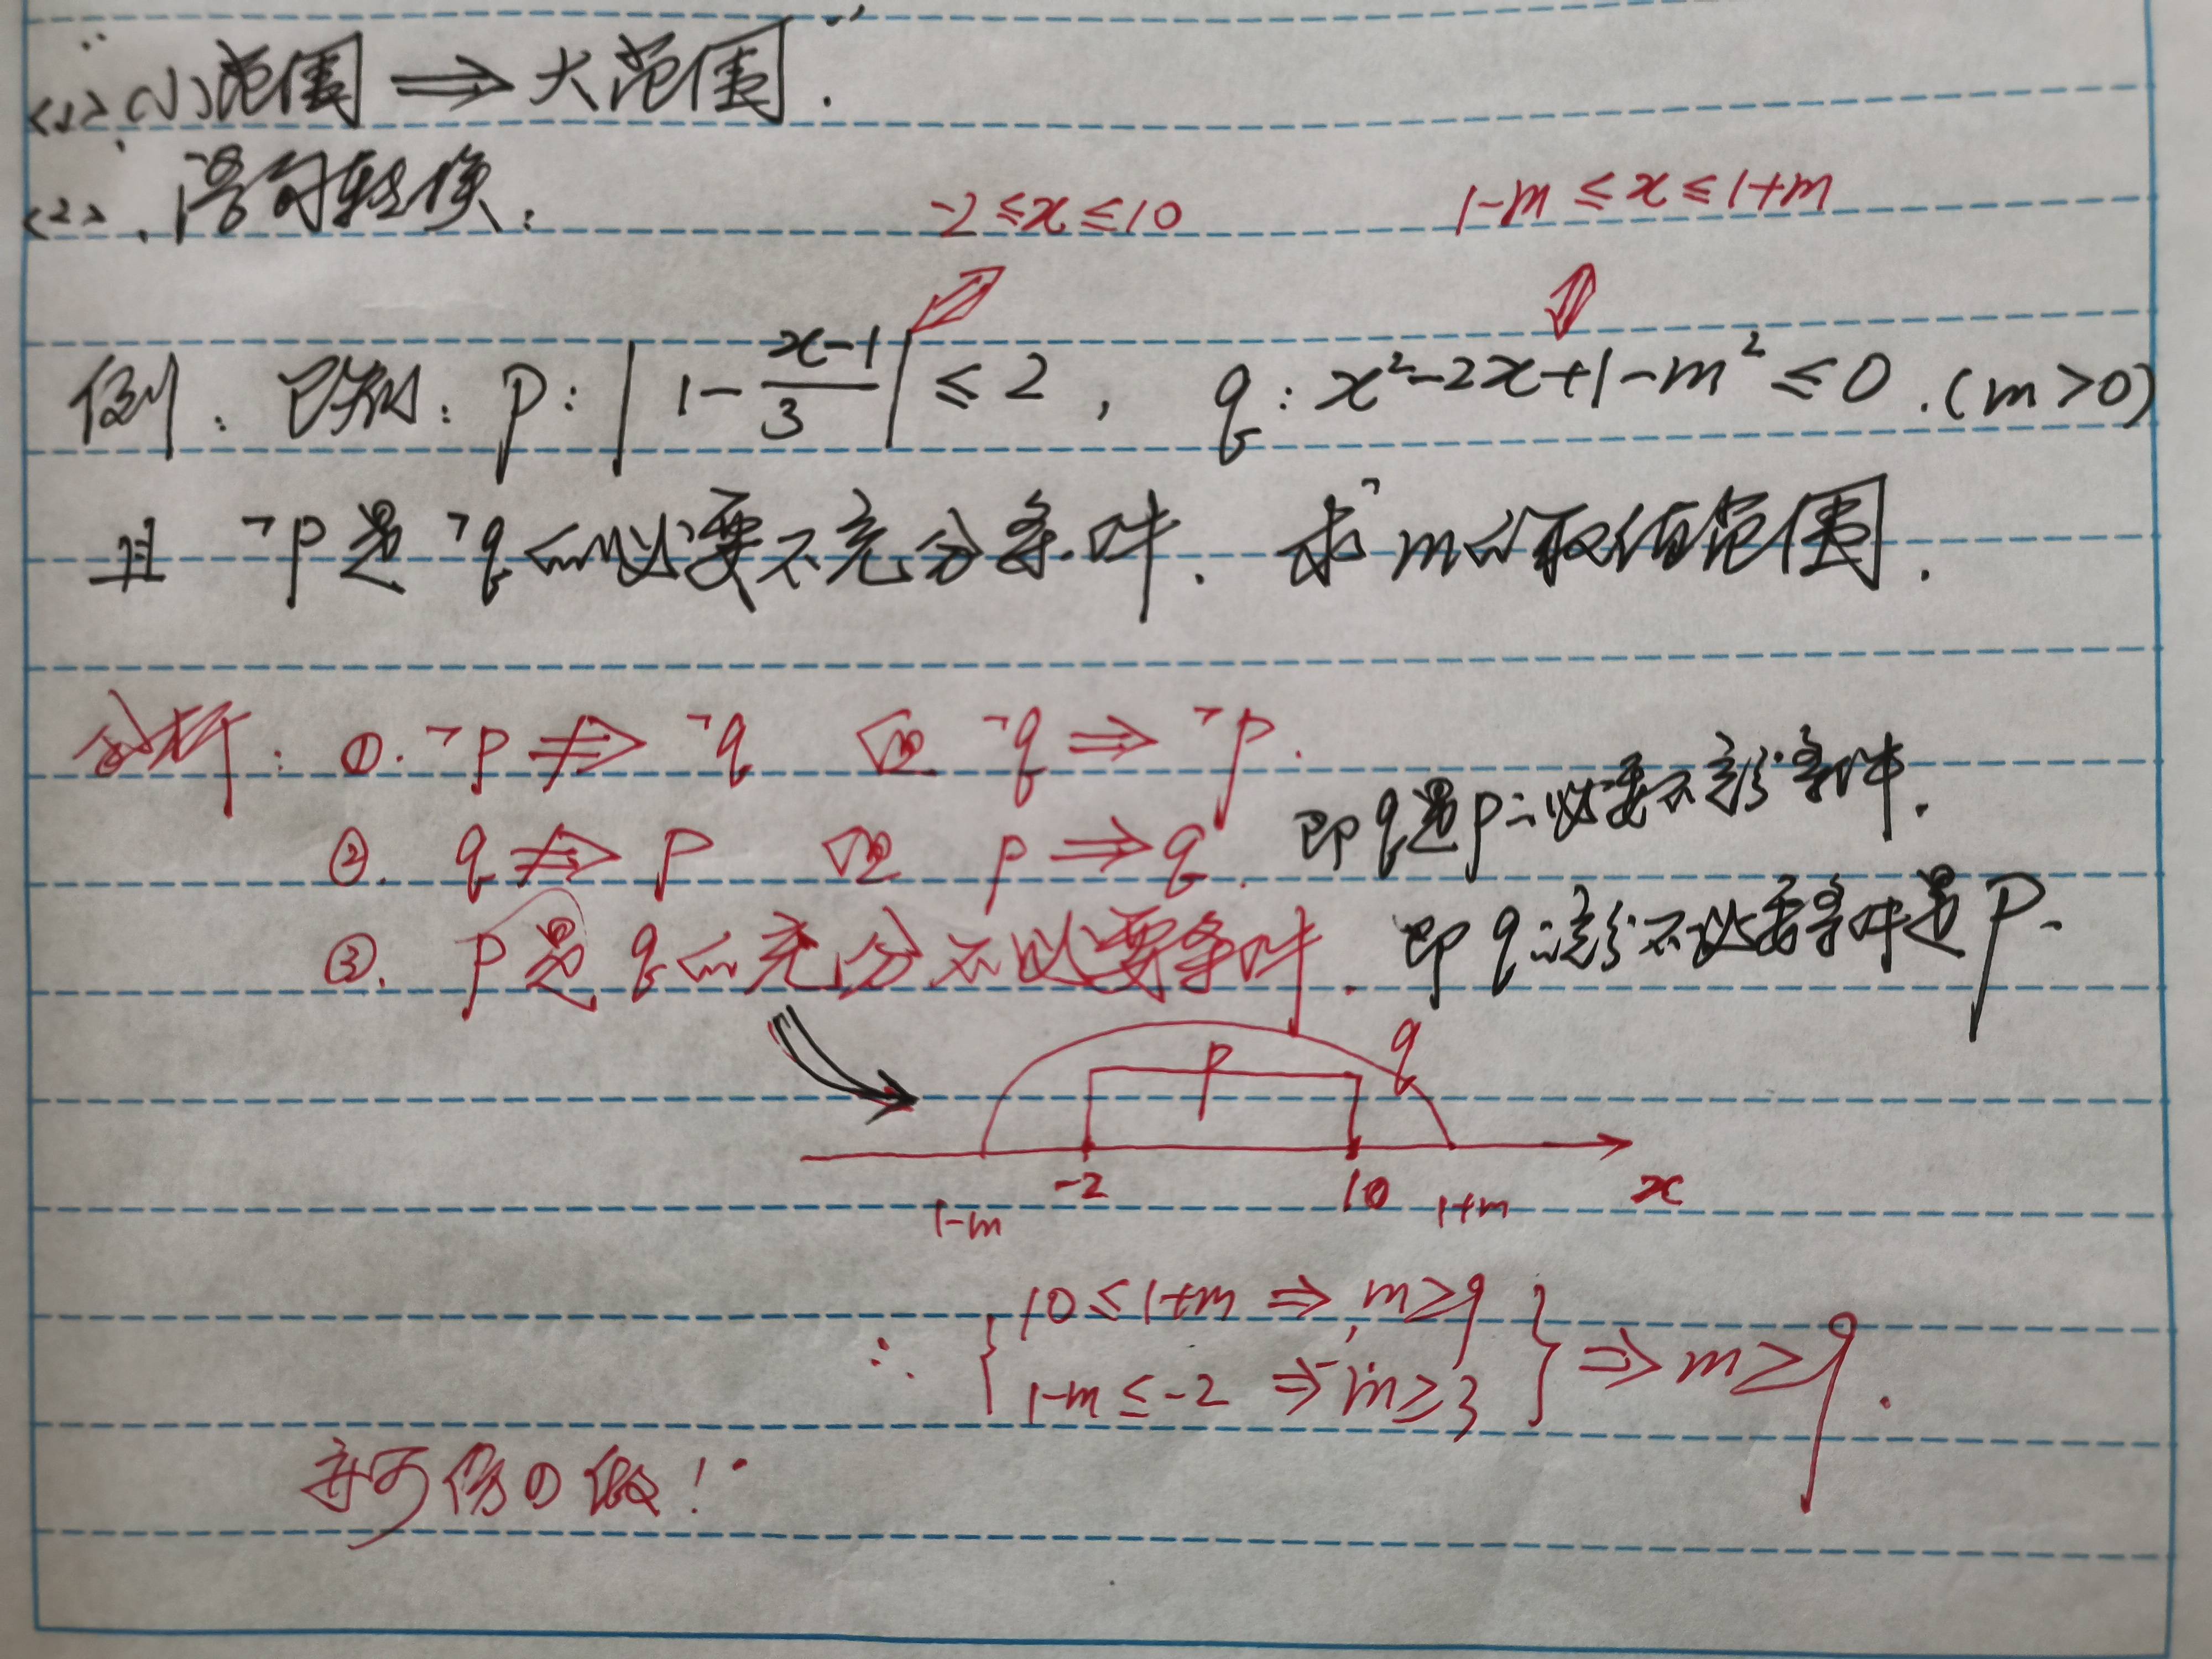 “<1>、小范围 ⇒ 大范围.”
<2>、语句转换:
-2≤x≤10   1-m≤x≤1+m
例:已知:p:|1-\frac{x-1}{3}|≤2, q:x²-2x+1-m²≤0.(m>0)
且 ¬p是¬q的必要不充分条件. 求m的取值范围.
分析:①.¬p ⇏ ¬q 但 ¬q ⇒ ¬p.
②. q ⇏ p 但 p ⇒ q. 即q是p的必要不充分条件.
③. p是q的充分不必要条件. 即q的充分不必要条件是p.
p q
1-m -2 10 1+m x
∴ { 10≤1+m ⇒ m≥9
1-m≤-2 ⇒ m≥3 } ⇒ m≥9.
①做!